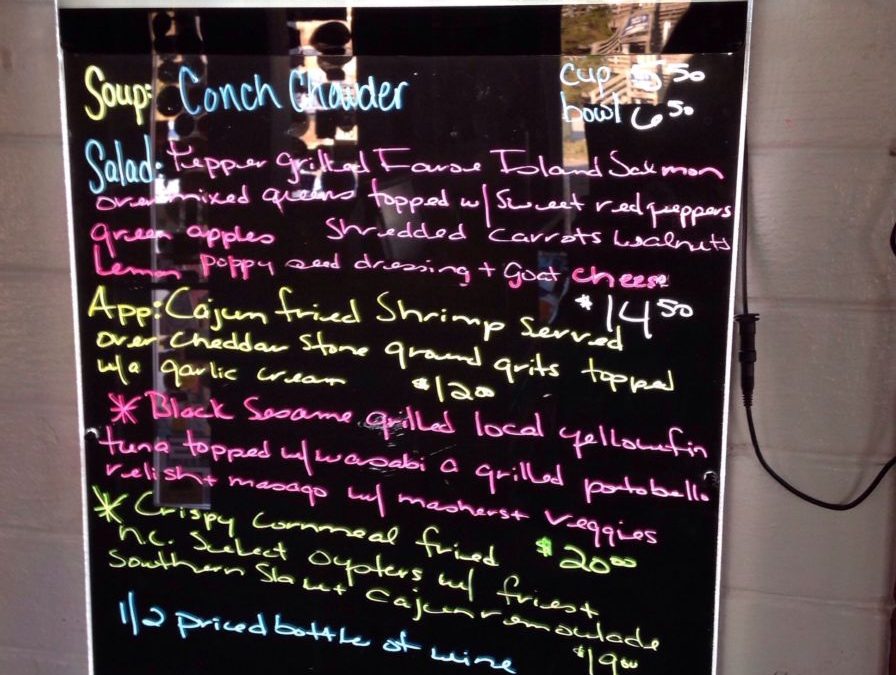 Soup: Conch Chowder cup 5 50
bowl 6 50
Salad: Pepper grilled Faroe Island Salmon
over mixed greens topped w/ Sweet red peppers
green apples Shredded Carrots Walnuts
Lemon poppy seed dressing + goat cheese
$14 50
App: Cajun fried Shrimp Served
over cheddar stone ground grits topped
w/a garlic cream $12 00
* Black Sesame grilled local yellowfin
tuna topped w/ wasabi a grilled portobello
relish + masago w/ mashers + veggies
$20 00
* Crispy Cornmeal fried
n.c. Select Oysters w/ fries +
Southern Slaw + Cajun remoulade
$19 00
1/2 priced bottle of wine